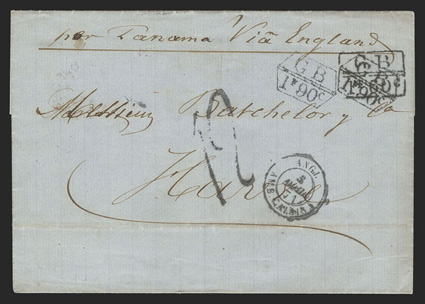 per Panama Via England
G B
1f 90c
G B
Messieurs Batchelor y Co
Havre
ANGL.
AMB. CALAIS